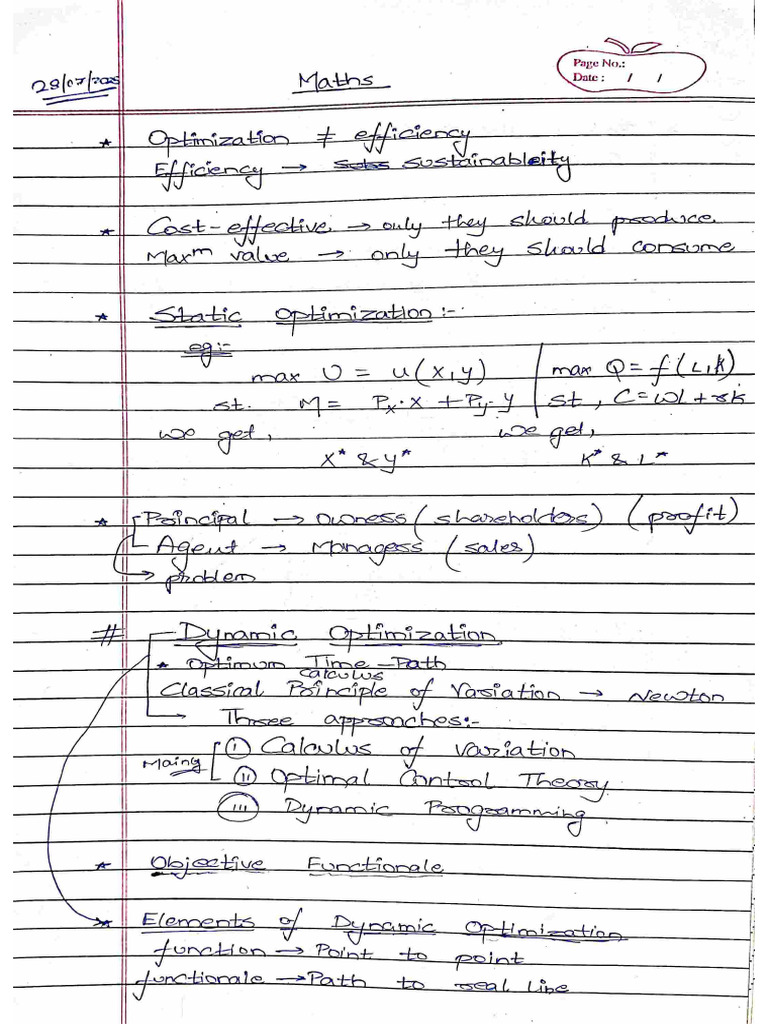 Page No.:
Date : / /
29/07/2025
Maths
* Optimization ≠ efficiency
Efficiency → sustainableity
* Cost-effective → only they should produce
Maxᵐ value → only they should consume
* Static Optimization :-
eg:-
max U = u(x,y) | max Q = f(L,K)
st. M = Px·x + Py·y | st, C = wL + rk
we get, we get,
x* & y* K* & L*
* Principal → owners (shareholders) (profit)
Agent → Managers (sales)
→ problem
# Dynamic Optimization
* Optimum Time-Path
calculus
Classical Principle of Variation → Newton
→ Three approaches:-
Mainy
(i) Calculus of Variation
(ii) Optimal Control Theory
(iii) Dynamic Programming
* Objective Functionale
* Elements of Dynamic Optimization
function → Point to point
functionale → Path to real line